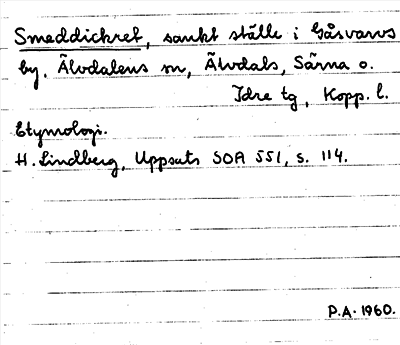 Smeddickret, sankt ställe i Gåsvarvs
by. Älvdalens sn, Älvdals, Särna o.
Idre tg, Kopp. l.
Etymologi.
H. Lindberg, Uppsats SOA 551, s. 114.
P.A. 1960.